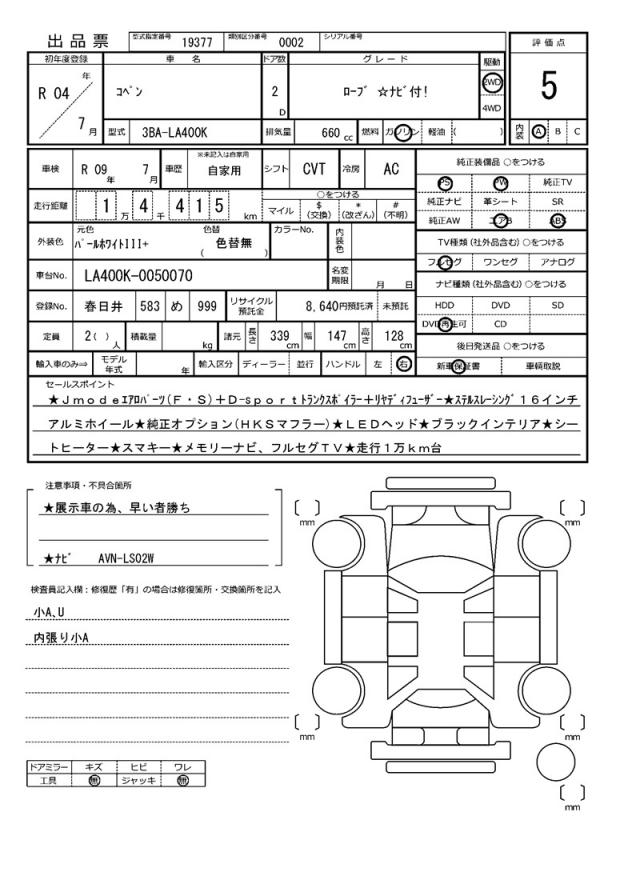 出品票 型式指定番号 19377 類別区分番号 0002 シリアル番号
初年度登録 車名 ドア数 グレード 駆動 評価点
R 04 年 7 月 コペン 2 D ローブ ☆ナビ付! 2WD 4WD 5
型式 3BA-LA400K 排気量 660 cc 燃料 ガソリン 軽油 ( ) 内装 A B C
車検 R 09 年 7 月 車歴 ※未記入は自家用 自家用 シフト CVT 冷房 AC
走行距離 1 万 4 千 4 1 5 km ○をつける マイル $ (交換) * (改ざん) # (不明)
外装色 元色 パールホワイトIII+ 色替 ( 色替無 ) カラーNo. 内装色
車台No. LA400K-0050070 名変期限 月 日
登録No. 春日井 583 め 999 リサイクル預託金 8,640円預託済 未預託
定員 2( ) 人 積載量 kg 諸元 長さ 339 cm 幅 147 cm 高さ 128 cm
輸入車のみ⇒ モデル年式 年 輸入区分 ディーラー 並行 ハンドル 左 右
純正装備品 ○をつける
PS PW 純正TV
純正ナビ 革シート SR
純正AW エアB ABS
TV種類 (社外品含む) ○をつける
フルセグ ワンセグ アナログ
ナビ種類 (社外品含む) ○をつける
HDD DVD SD
DVD再生可 CD
後日発送品 ○をつける
新車保証書 車輌取説
セールスポイント
★Jmodeエアロパーツ(F・S)+D-sportトランクスポイラー+リヤディフューザー★ステルスレーシング16インチ
アルミホイール★純正オプション(HKSマフラー)★LEDヘッド★ブラックインテリア★シー
トヒーター★スマキー★メモリーナビ、フルセグTV★走行1万km台
注意事項・不具合箇所
★展示車の為、早い者勝ち
★ナビ AVN-LS02W
検査員記入欄：修復歴「有」の場合は修復箇所・交換箇所を記入
小A、U
内張り小A
ドアミラー キズ ヒビ ワレ
工具 無 ジャッキ 無
mm
mm
mm
mm
mm